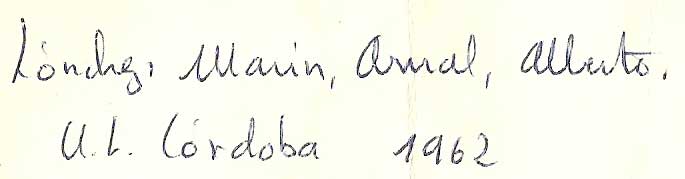 Lóndrez, Marin, Arnal, Alberto.
U.L. Córdoba 1962